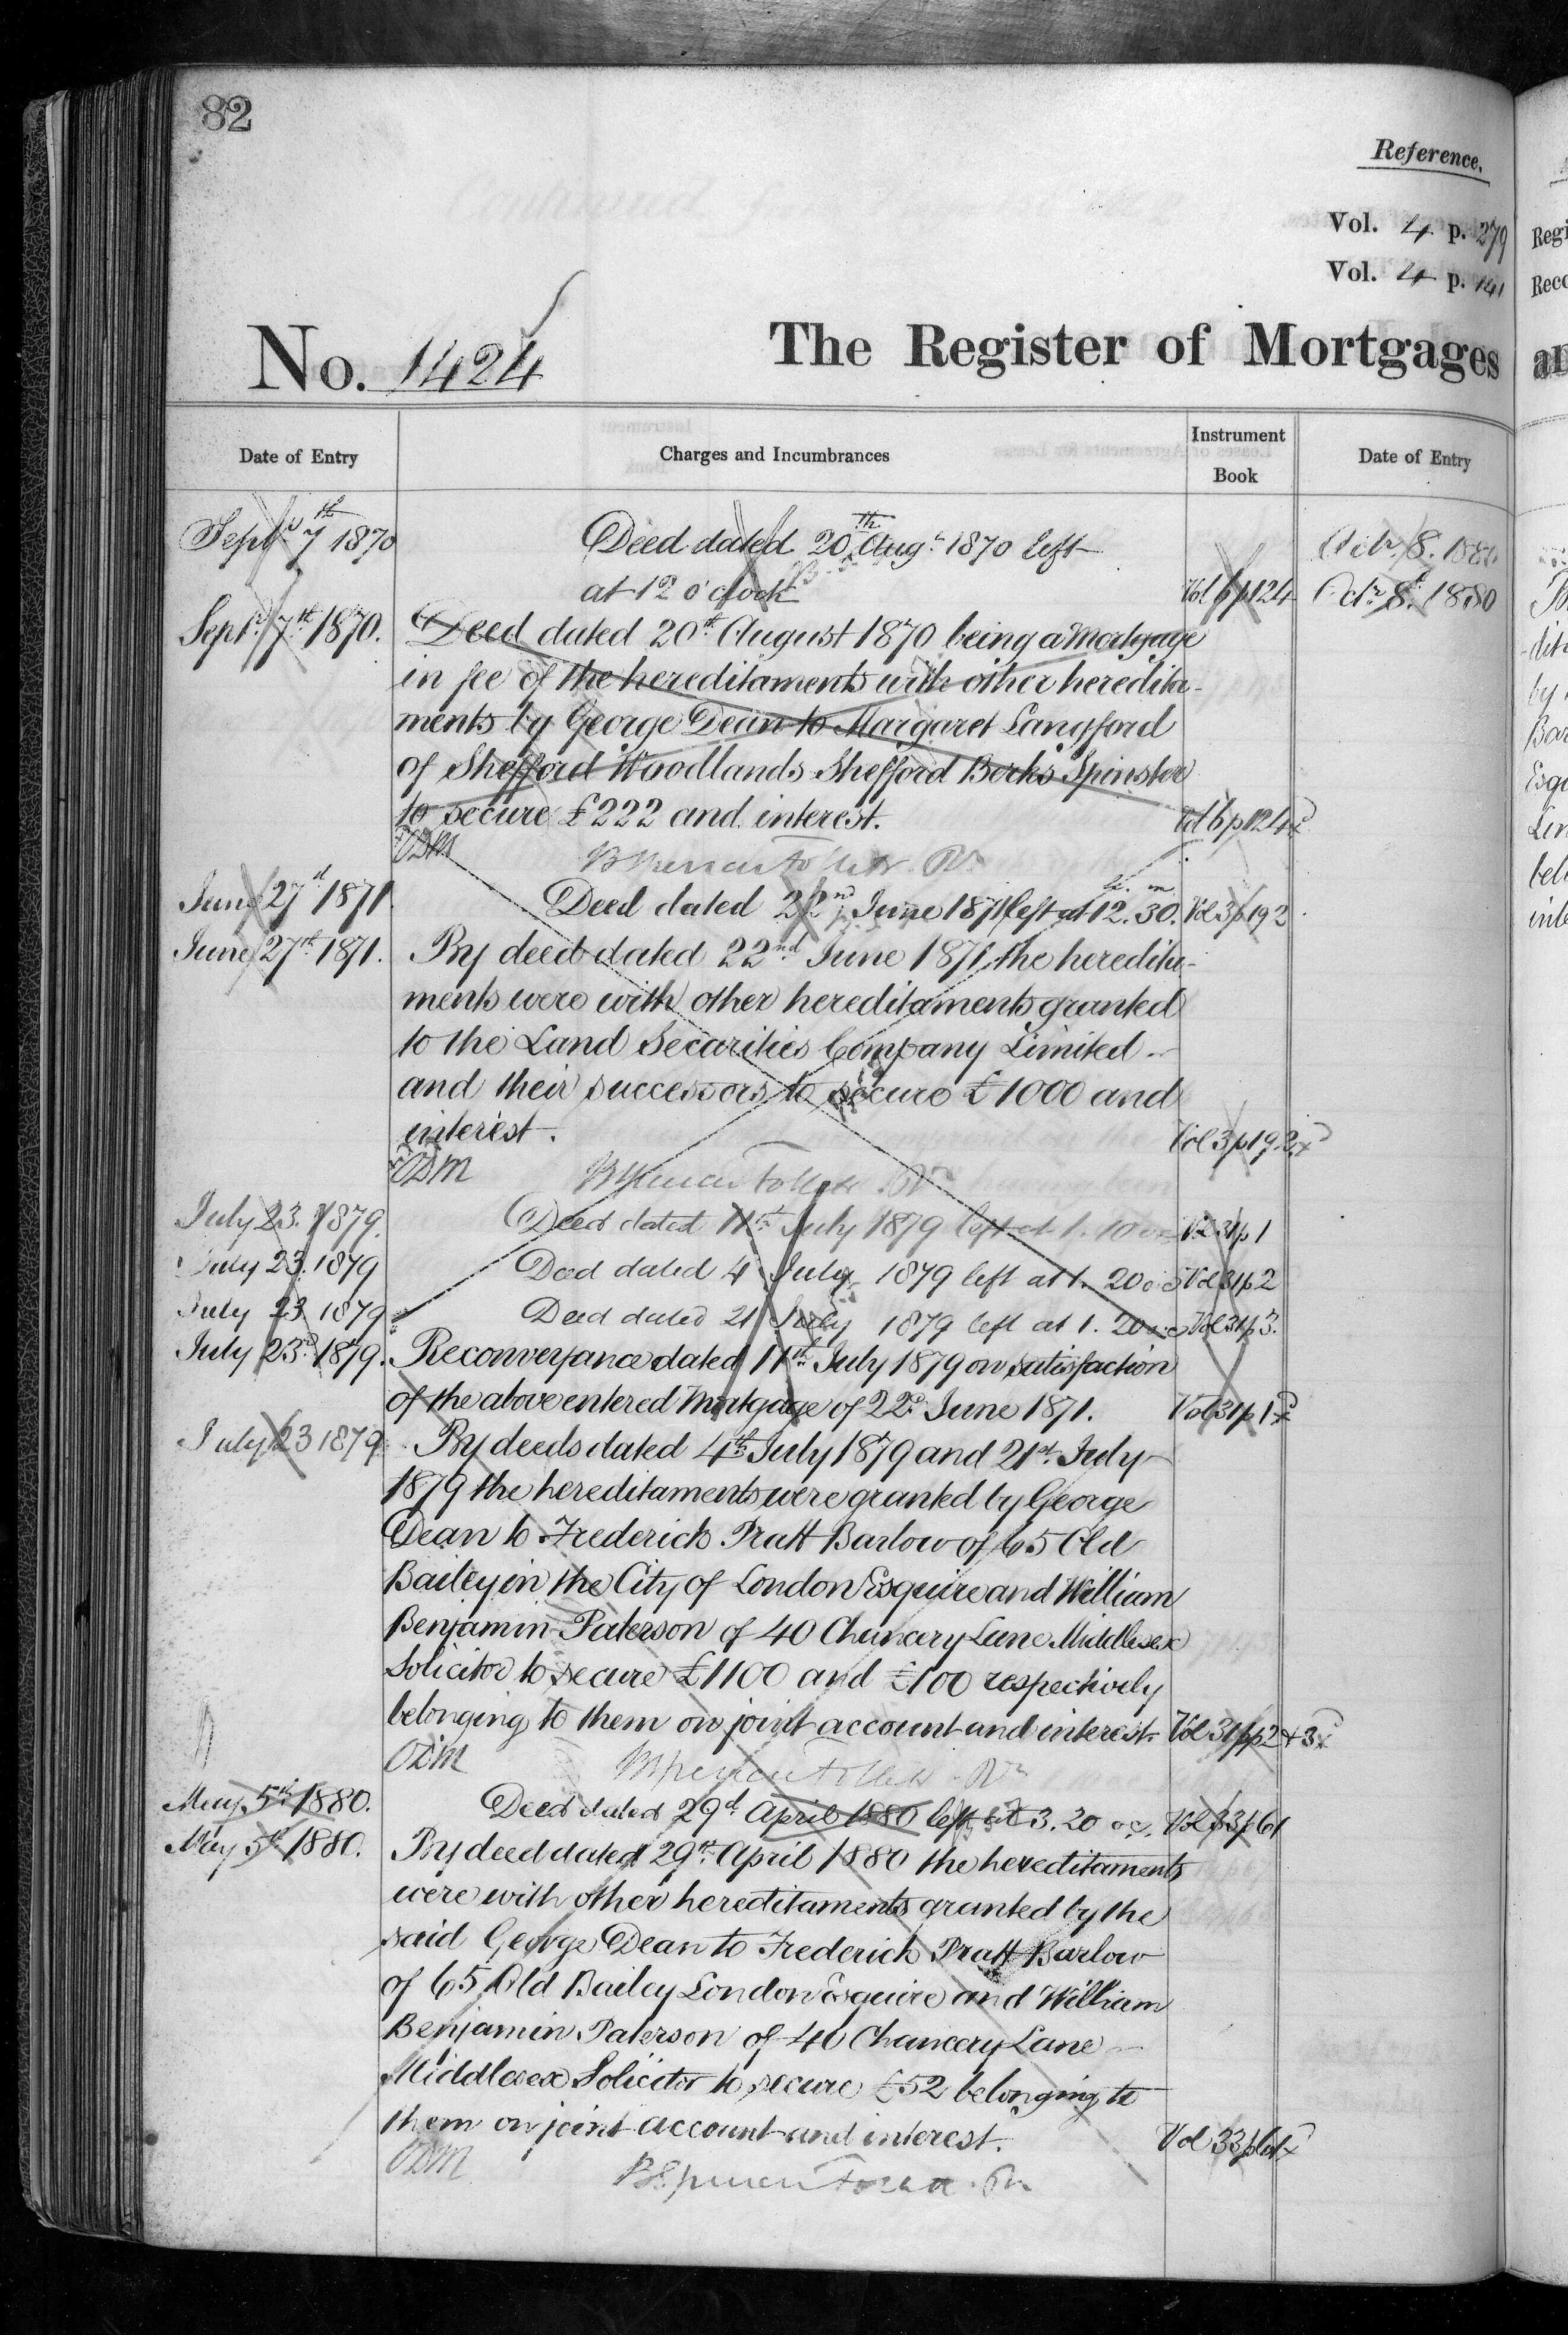 82
Reference.
Vol. 4 p. 279
Vol. 4 p. 141
No. 1424
The Register of Mortgages
Date of Entry
Charges and Incumbrances
Instrument Book
Date of Entry
Sept. 7th 1870 Deed dated 20th Aug. 1870 left Octr. 8. 1880
at 12 o'clock Vol 6 p 124 Octr. 8. 1880
Sept. 7th 1870. Deed dated 20th August 1870 being a Mortgage
in fee of the hereditaments with other heredita-
ments by George Dean to Margaret Langford
of Shefford Woodlands Shefford Berks Spinster
to secure £222 and interest. Vol 6 p 124 x
ODM
June 27th 1871 Deed dated 22nd June 1871 left at 12. 30. Vol 3 p 192
June 27th 1871. By deed dated 22nd June 1871 the heredita-
ments were with other hereditaments granted
to the Land Securities Company Limited
and their successors to secure £1000 and
interest. Vol 3 p 192 x
ODM
July 23. 1879. Deed dated 11th July 1879 left at 1. 10 oc Vol 31 p 1
July 23. 1879 Deed dated 4 July 1879 left at 1. 20 oc Vol 31 p 2
July 23 1879 Deed dated 21 July 1879 left at 1. 20 oc Vol 31 p 3.
July 23d 1879. Reconveyance dated 11th July 1879 on satisfaction
of the above entered Mortgage of 22d June 1871. Vol 31 p 1 x
July 23 1879 By deeds dated 4th July 1879 and 21st July
1879 the hereditaments were granted by George
Dean to Frederick Pratt Barlow of 65 Old
Bailey in the City of London Esquire and William
Benjamin Paterson of 40 Chancery Lane Middlesex
Solicitor to secure £1100 and £100 respectively
belonging to them on joint account and interest. Vol 31 pp 2 & 3 x
ODM
May 5th 1880. Deed dated 29th April 1880 left at 3. 20 oc. Vol 33 p 61
May 5th 1880. By deed dated 29th April 1880 the hereditaments
were with other hereditaments granted by the
said George Dean to Frederick Pratt Barlow
of 65 Old Bailey London Esquire and William
Benjamin Paterson of 40 Chancery Lane
Middlesex Solicitor to secure £52 belonging to
them on joint account and interest. Vol 33 p 61 x
ODM